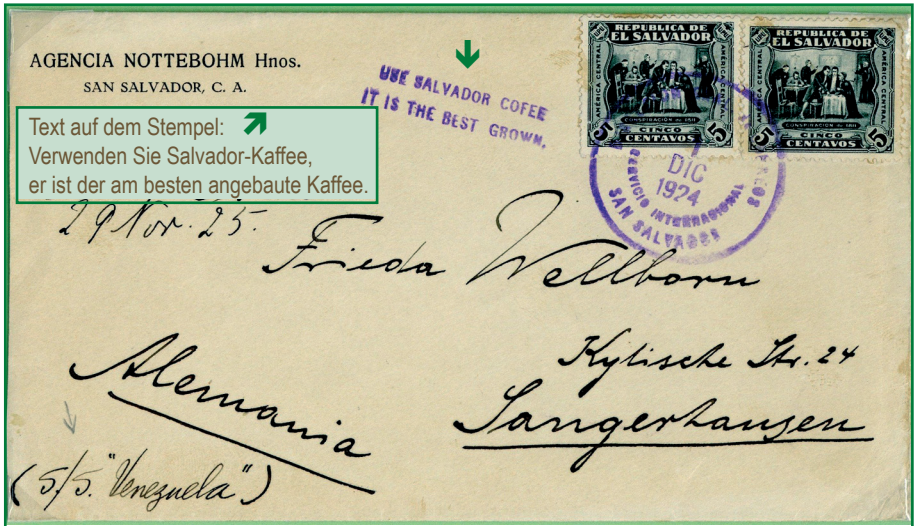 AGENCIA NOTTEBOHM Hnos.
SAN SALVADOR, C. A.
USE SALVADOR COFEE
IT IS THE BEST GROWN.
Text auf dem Stempel:
Verwenden Sie Salvador-Kaffee,
er ist der am besten angebaute Kaffee.
REPUBLICA DE
EL SALVADOR
AMÉRICA CENTRAL
AMÉRICA CENTRAL
CONSPIRACIÓN DE 1811
5 CINCO 5
CENTAVOS
REPUBLICA DE
EL SALVADOR
AMÉRICA CENTRAL
AMÉRICA CENTRAL
CONSPIRACIÓN DE 1811
5 CINCO 5
CENTAVOS
1
DIC
1924
SERVICIO INTERNACIONAL
SAN SALVADOR
29 Nov. 25.
Frieda Wellborn
Kylische Str. 24
Sangerhausen
Alemania
(S/S. "Venezuela")